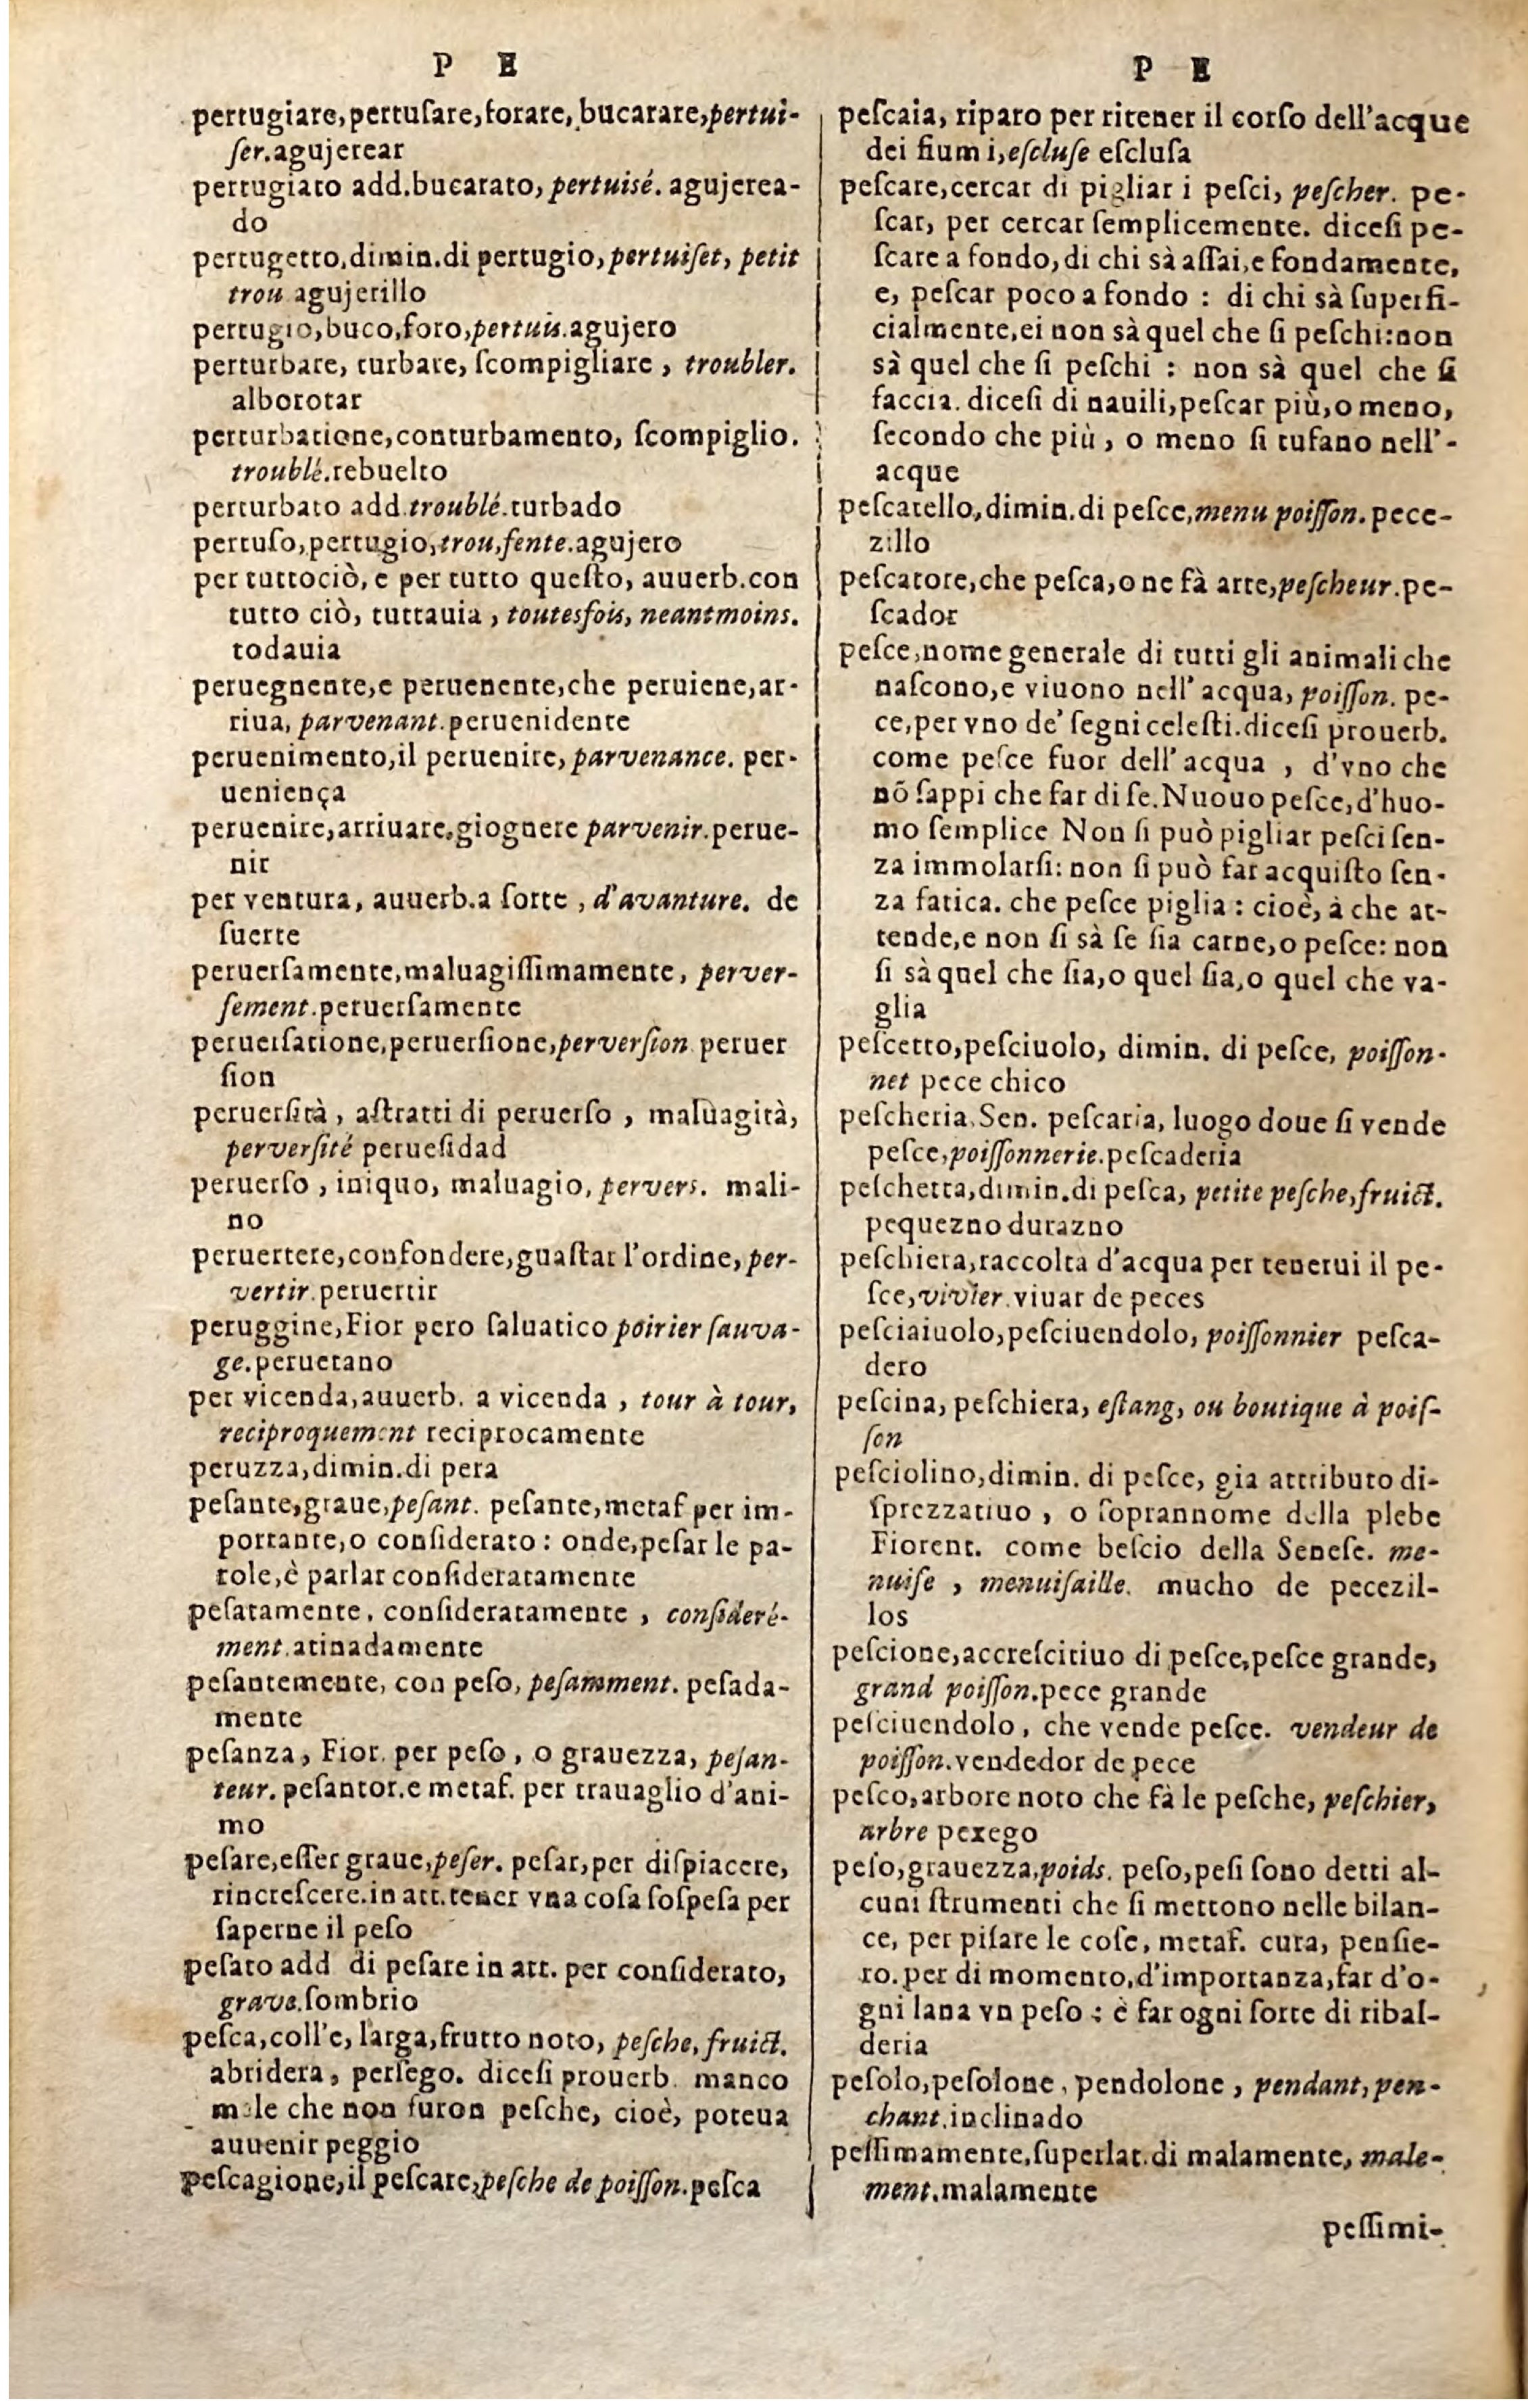 P E
pertugiare,pertuſare,forare,bucarare,pertui-
ſer.agujerear
pertugiato add.bucarato, pertuisé. agujerea-
do
pertugetto,dimin.di pertugio,pertuiſet, petit
trou agujerillo
pertugio,buco,foro,pertuis.agujero
perturbare, turbare, ſcompigliare , troubler.
alborotar
perturbatione,conturbamento, ſcompiglio.
troublé.rebuelto
perturbato add.troublé.turbado
pertuſo,pertugio,trou,fente.agujero
per tuttociò, e per tutto queſto, auuerb.con
tutto ciò, tuttauia , toutesfois, neantmoins.
todauia
peruegnente,e peruenente,che peruiene,ar-
riua, parvenant.peruenidente
peruenimento,il peruenire, parvenance. per-
ueniença
peruenire,arriuare,giognere parvenir.perue-
nir
per ventura, auuerb.a ſorte , d'avanture. de
ſuerte
peruerſamente,maluagiſſimamente, perver-
ſement.peruerſamente
peruerſatione,peruerſione,perverſion peruer
ſion
peruerſità , aſtratti di peruerſo , maluagità,
perverſité perueſidad
peruerſo , iniquo, maluagio, pervers. mali-
no
peruertere,confondere,guaſtar l'ordine, per-
vertir.peruertir
peruggine,Fior pero ſaluatico poirier ſauva-
ge.peruetano
per vicenda,auuerb. a vicenda , tour à tour,
reciproquement reciprocamente
peruzza,dimin.di pera
peſante,graue,peſant. peſante,metaf per im-
portante,o conſiderato : onde,peſar le pa-
role,è parlar conſideratamente
peſatamente, conſideratamente , conſideré-
ment.atinadamente
peſantemente, con peſo, peſamment. peſada-
mente
peſanza , Fior. per peſo , o grauezza, peſan-
teur. peſantor.e metaf. per trauaglio d'ani-
mo
peſare,eſſer graue,peſer. peſar,per diſpiacere,
rincreſcere.in att.tener vna coſa ſoſpeſa per
ſaperne il peſo
peſato add di peſare in att. per conſiderato,
grave.ſombrio
peſca,coll'e, larga,frutto noto, peſche, fruict.
abridera , perſego. diceſi prouerb. manco
male che non furon peſche, cioè, poteua
auuenir peggio
peſcagione,il peſcare,peſche de poiſſon.peſca
P E
peſcaia, riparo per ritener il corſo dell'acque
dei fium i,eſcluſe eſcluſa
peſcare,cercar di pigliar i peſci, peſcher. pe-
ſcar, per cercar ſemplicemente. diceſi pe-
ſcare a fondo,di chi sà aſſai,e fondamente,
e, peſcar poco a fondo : di chi sà ſuperfi-
cialmente,ei non sà quel che ſi peſchi:non
sà quel che ſi peſchi : non sà quel che ſi
faccia. diceſi di nauili,peſcar più,o meno,
ſecondo che più , o meno ſi tufano nell'-
acque
peſcatello,dimin.di peſce,menu poiſſon.pece-
zillo
peſcatore,che peſca,o ne fà arte,peſcheur.pe-
ſcador
peſce,nome generale di tutti gli animali che
naſcono,e viuono nell' acqua, poiſſon. pe-
ce,per vno de' ſegni celeſti.diceſi prouerb.
come peſce fuor dell' acqua , d'vno che
nō ſappi che far di ſe.Nuouo peſce,d'huo-
mo ſemplice Non ſi può pigliar peſci ſen-
za immolarſi: non ſi può far acquiſto ſen-
za fatica. che peſce piglia : cioè, à che at-
tende,e non ſi sà ſe ſia carne,o peſce: non
ſi sà quel che ſia,o quel ſia,o quel che va-
glia
peſcetto,peſciuolo, dimin. di peſce, poiſſon-
net pece chico
peſcheria,Sen. peſcaria, luogo doue ſi vende
peſce,poiſſonnerie.peſcaderia
peſchetta,dimin.di peſca, petite peſche,fruict.
pequezno durazno
peſchiera,raccolta d'acqua per tenerui il pe-
ſce,vivier.viuar de peces
peſciaiuolo,peſciuendolo, poiſſonnier peſca-
dero
peſcina, peſchiera, eſtang, ou boutique à poiſ-
ſon
peſciolino,dimin. di peſce, gia attributo di-
ſprezzatiuo , o ſoprannome della plebe
Fiorent. come beſcio della Seneſe. me-
nuiſe , menuiſaille. mucho de pecezil-
los
peſcione,accreſcitiuo di peſce,peſce grande,
grand poiſſon.pece grande
peſciuendolo, che vende peſce. vendeur de
poiſſon.vendedor de pece
peſco,arbore noto che fà le peſche, peſchier,
arbre pexego
peſo,grauezza,poids. peſo,peſi ſono detti al-
cuni ſtrumenti che ſi mettono nelle bilan-
ce, per piſare le coſe, metaf. cura, penſie-
ro.per di momento,d'importanza,far d'o-
gni lana vn peſo : è far ogni ſorte di ribal-
deria
peſolo,peſolone, pendolone , pendant,pen-
chant.inclinado
peſſimamente,ſuperlat.di malamente, male-
ment.malamente
peſſimi-